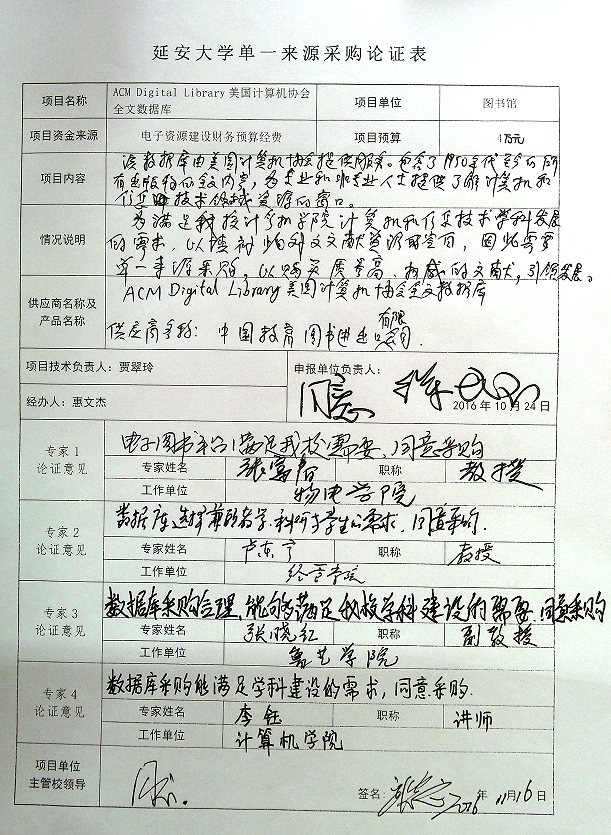 延安大学单一来源采购论证表
项目名称
ACM Digital Library 美国计算机协会
全文数据库
项目单位
图书馆
项目资金来源
电子资源建设财务预算经费
项目预算
4万元
项目内容
该数据库由美国计算机协会提供服务。包含了1950年代至今的所
有出版物的全文内容，为专业和非专业人士提供了了解计算机和
信息技术领域资源的窗口。
情况说明
为满足我校计算机学院计算机和信息技术学科发展
的需求，以填补外文文献资源的空白，因此需要
单一来源采购，以购买质量高、权威的文献，引领发展。
供应商名称及
产品名称
ACM Digital Library美国计算机协会全文数据库
供应商名称：中国教育图书进出口有限公司
项目技术负责人：贾翠玲
申报单位负责人：
经办人：惠文杰
2016年10月24日
专家 1
论证意见
电子图书平台满足我校需要，同意采购
专家姓名
职称
教授
工作单位
物电学院
专家 2
论证意见
数据库选择兼顾教学、科研与学生的需求，同意采购.
专家姓名
卢东宁
职称
教授
工作单位
经管学院
专家 3
论证意见
数据库采购合理，能够满足我校学科建设的需要，同意采购
专家姓名
张晓红
职称
副教授
工作单位
鲁艺学院
专家 4
论证意见
数据库采购能满足学科建设的需求，同意采购.
专家姓名
李钰
职称
讲师
工作单位
计算机学院
项目单位
主管校领导
签名：
2016年11月16日